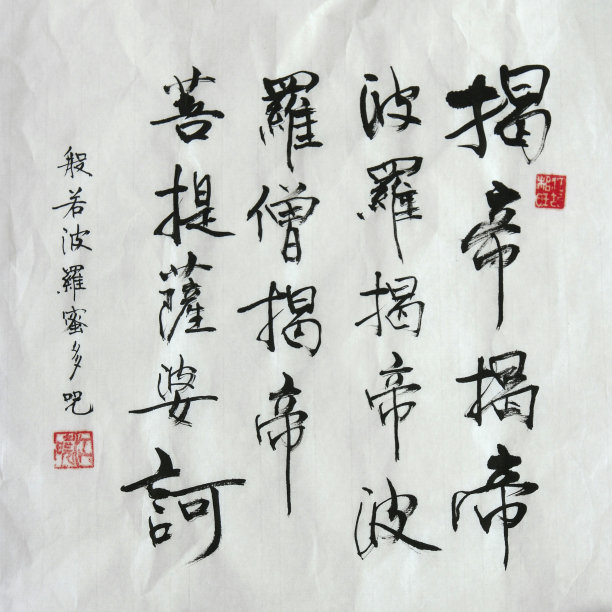 揭帝揭帝
波羅揭帝波
羅僧揭帝
菩提薩婆訶
般若波羅蜜多呪